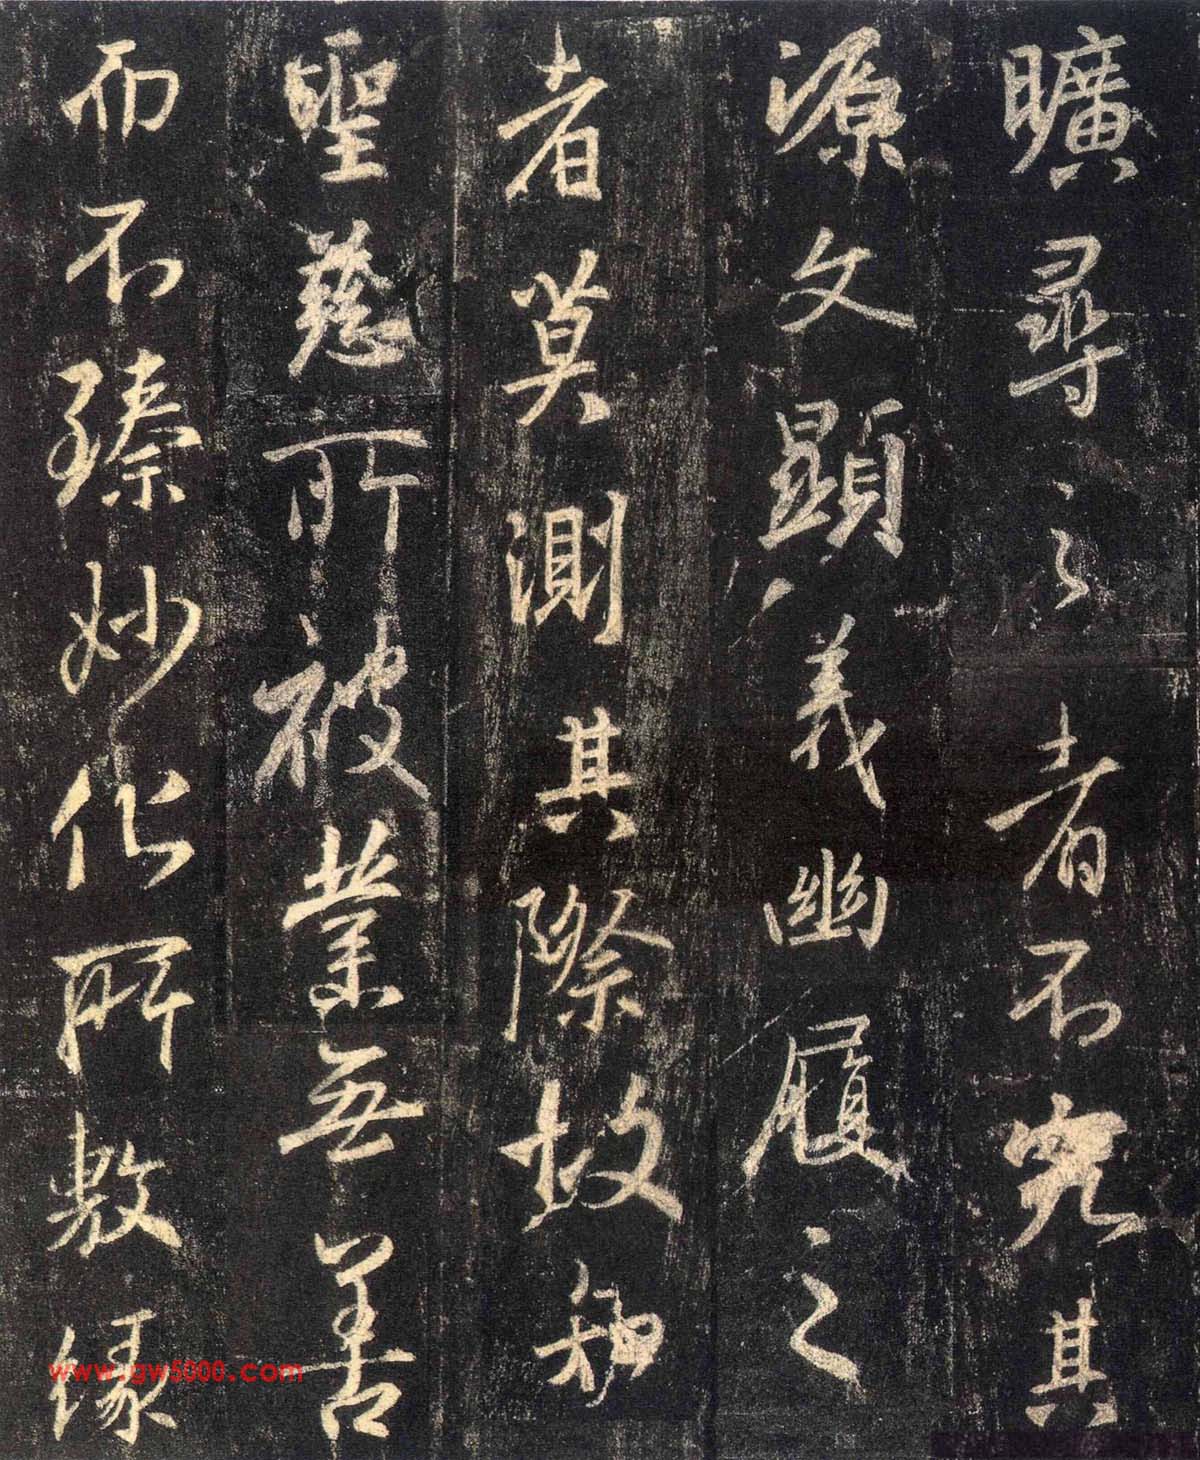 曠尋之者不究其
源文顯義幽履之
者莫測其際故知
聖慈所被業無善
而不臻妙化所敷緣
www.gw5000.com